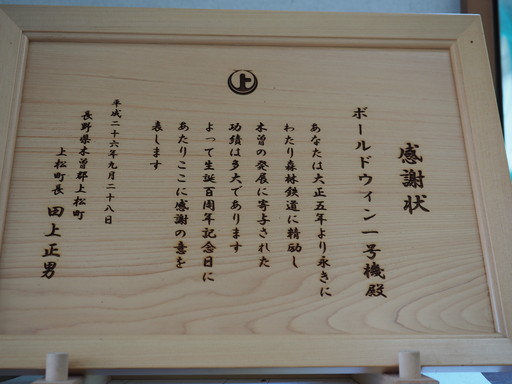 上
感謝状
ボールドウィン一号機殿
あなたは大正五年より永きに
わたり森林鉄道に精励し
木曽の発展に寄与された
功績は多大であります
よって生誕百周年記念日に
あたりここに感謝の意を
表します
平成二十六年九月二十八日
長野県木曽郡上松町
上松町長 田上正男